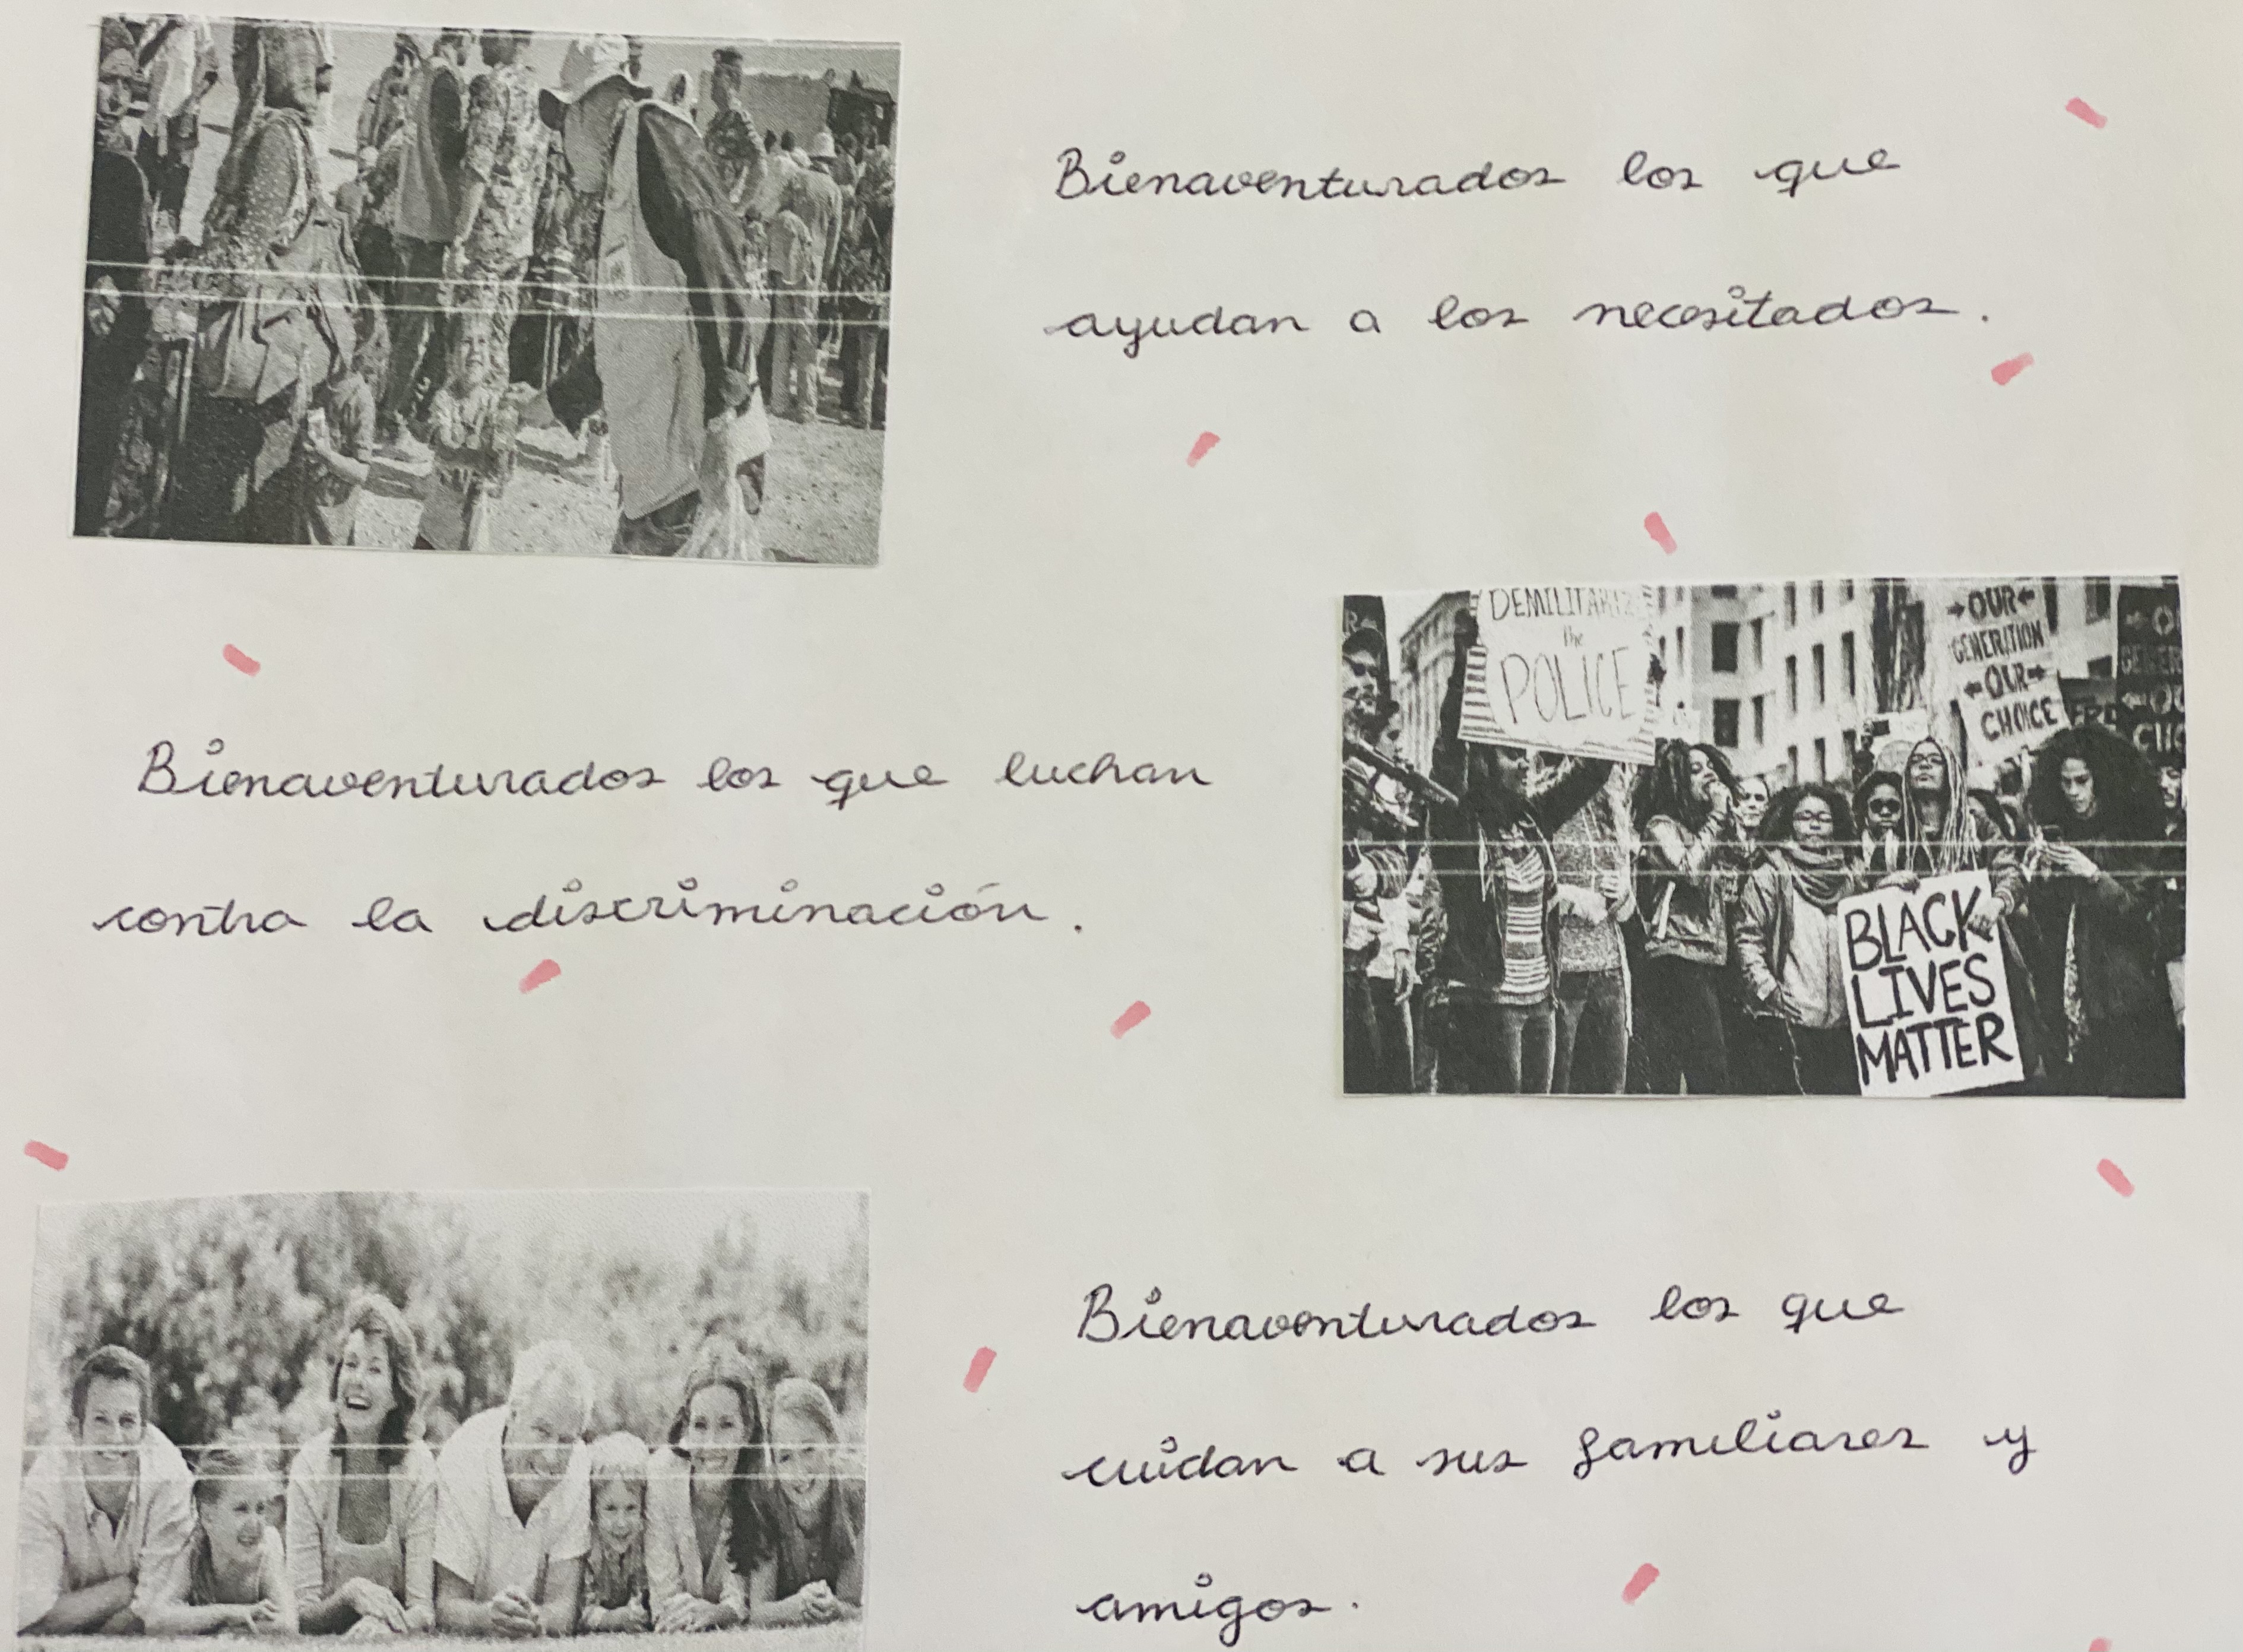 Bienaventurados los que
ayudan a los necesitados.
DEMILITARIZ
the
POLICE
→OUR←
GENERATION
←OUR→
CHOICE
Bienaventurados los que luchan
contra la discriminación.
BLACK
LIVES
MATTER
Bienaventurados los que
cuidan a sus familiares y
amigos.